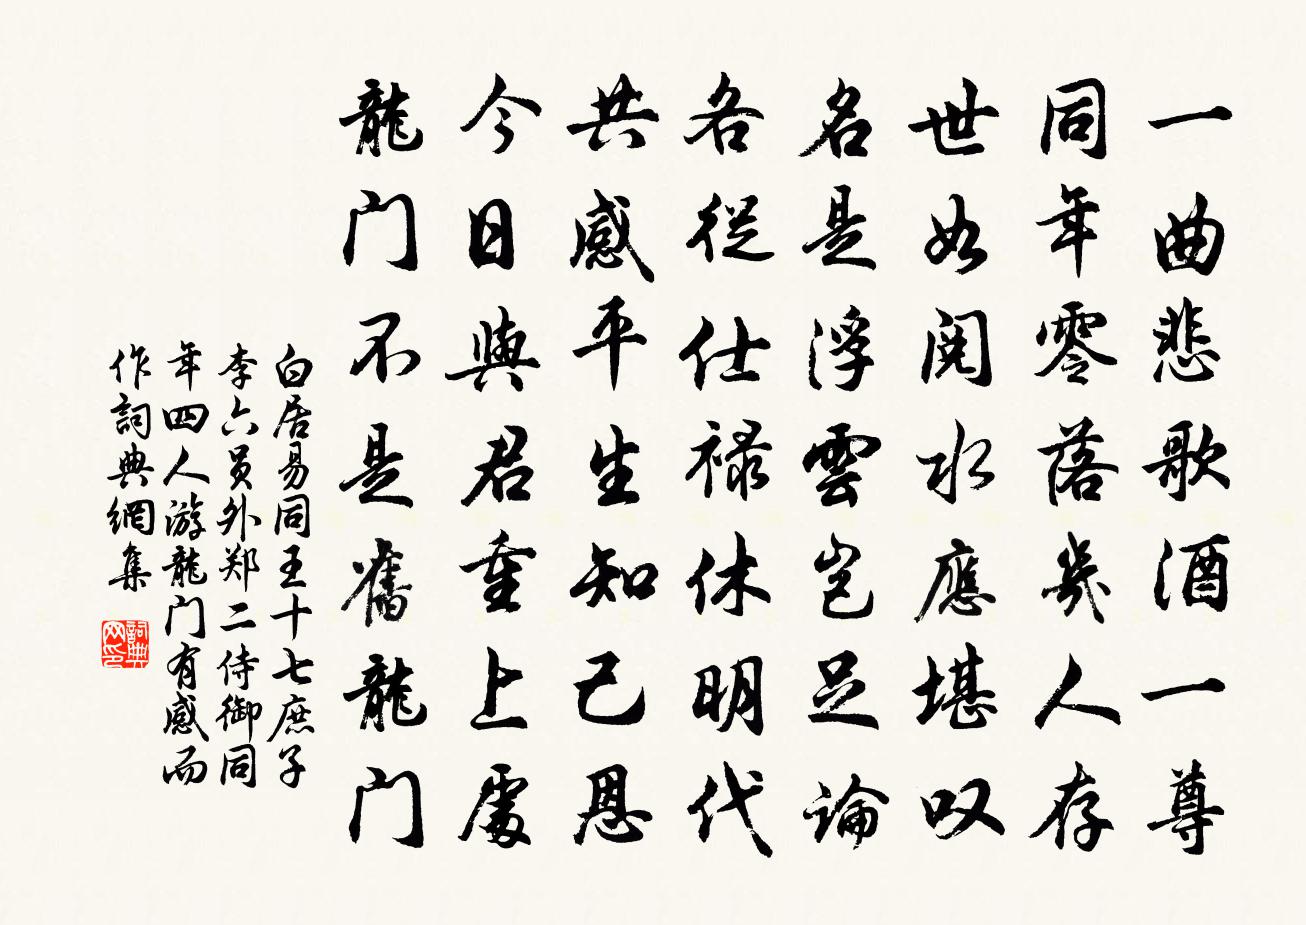 一曲悲歌酒一尊
同年零落幾人存
世如閱水應堪叹
名是浮雲豈足論
各從仕禄休明代
共感平生知己恩
今日與君重上處
龍门不是舊龍门
白居易同王十七庶子
李六员外郑二侍御同
年四人游龍门有感而
作詞典網集
詞典
网印